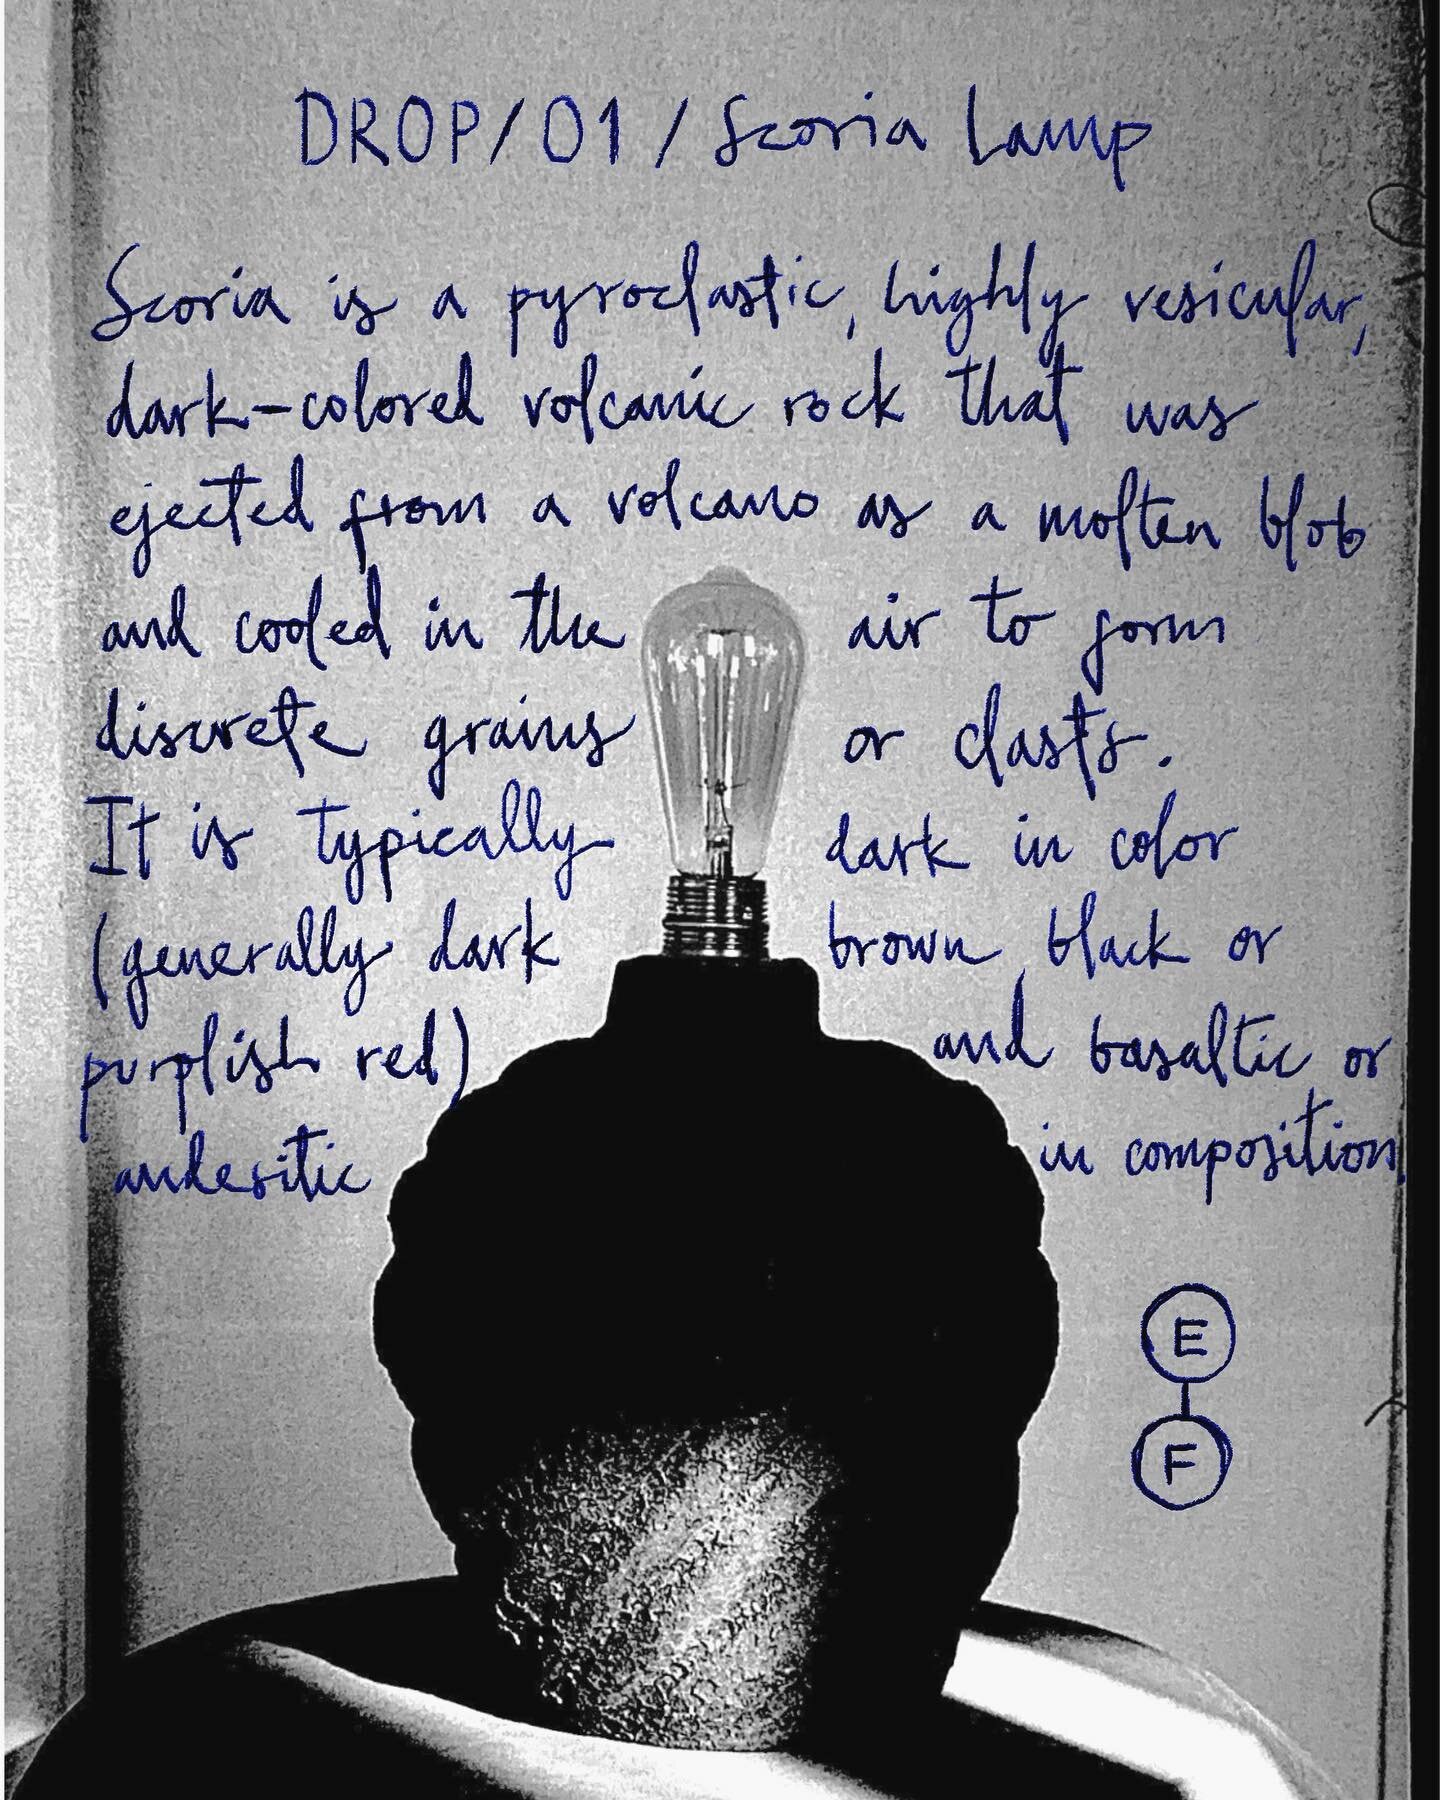 DROP/01/Scoria Lamp
Scoria is a pyroclastic, highly vesicular,
dark-colored volcanic rock that was
ejected from a volcano as a molten blob
and cooled in the air to form
discrete grains or clasts.
It is typically dark in color
(generally dark brown, black or
purplish red) and basaltic or
andesitic in composition.
E
F